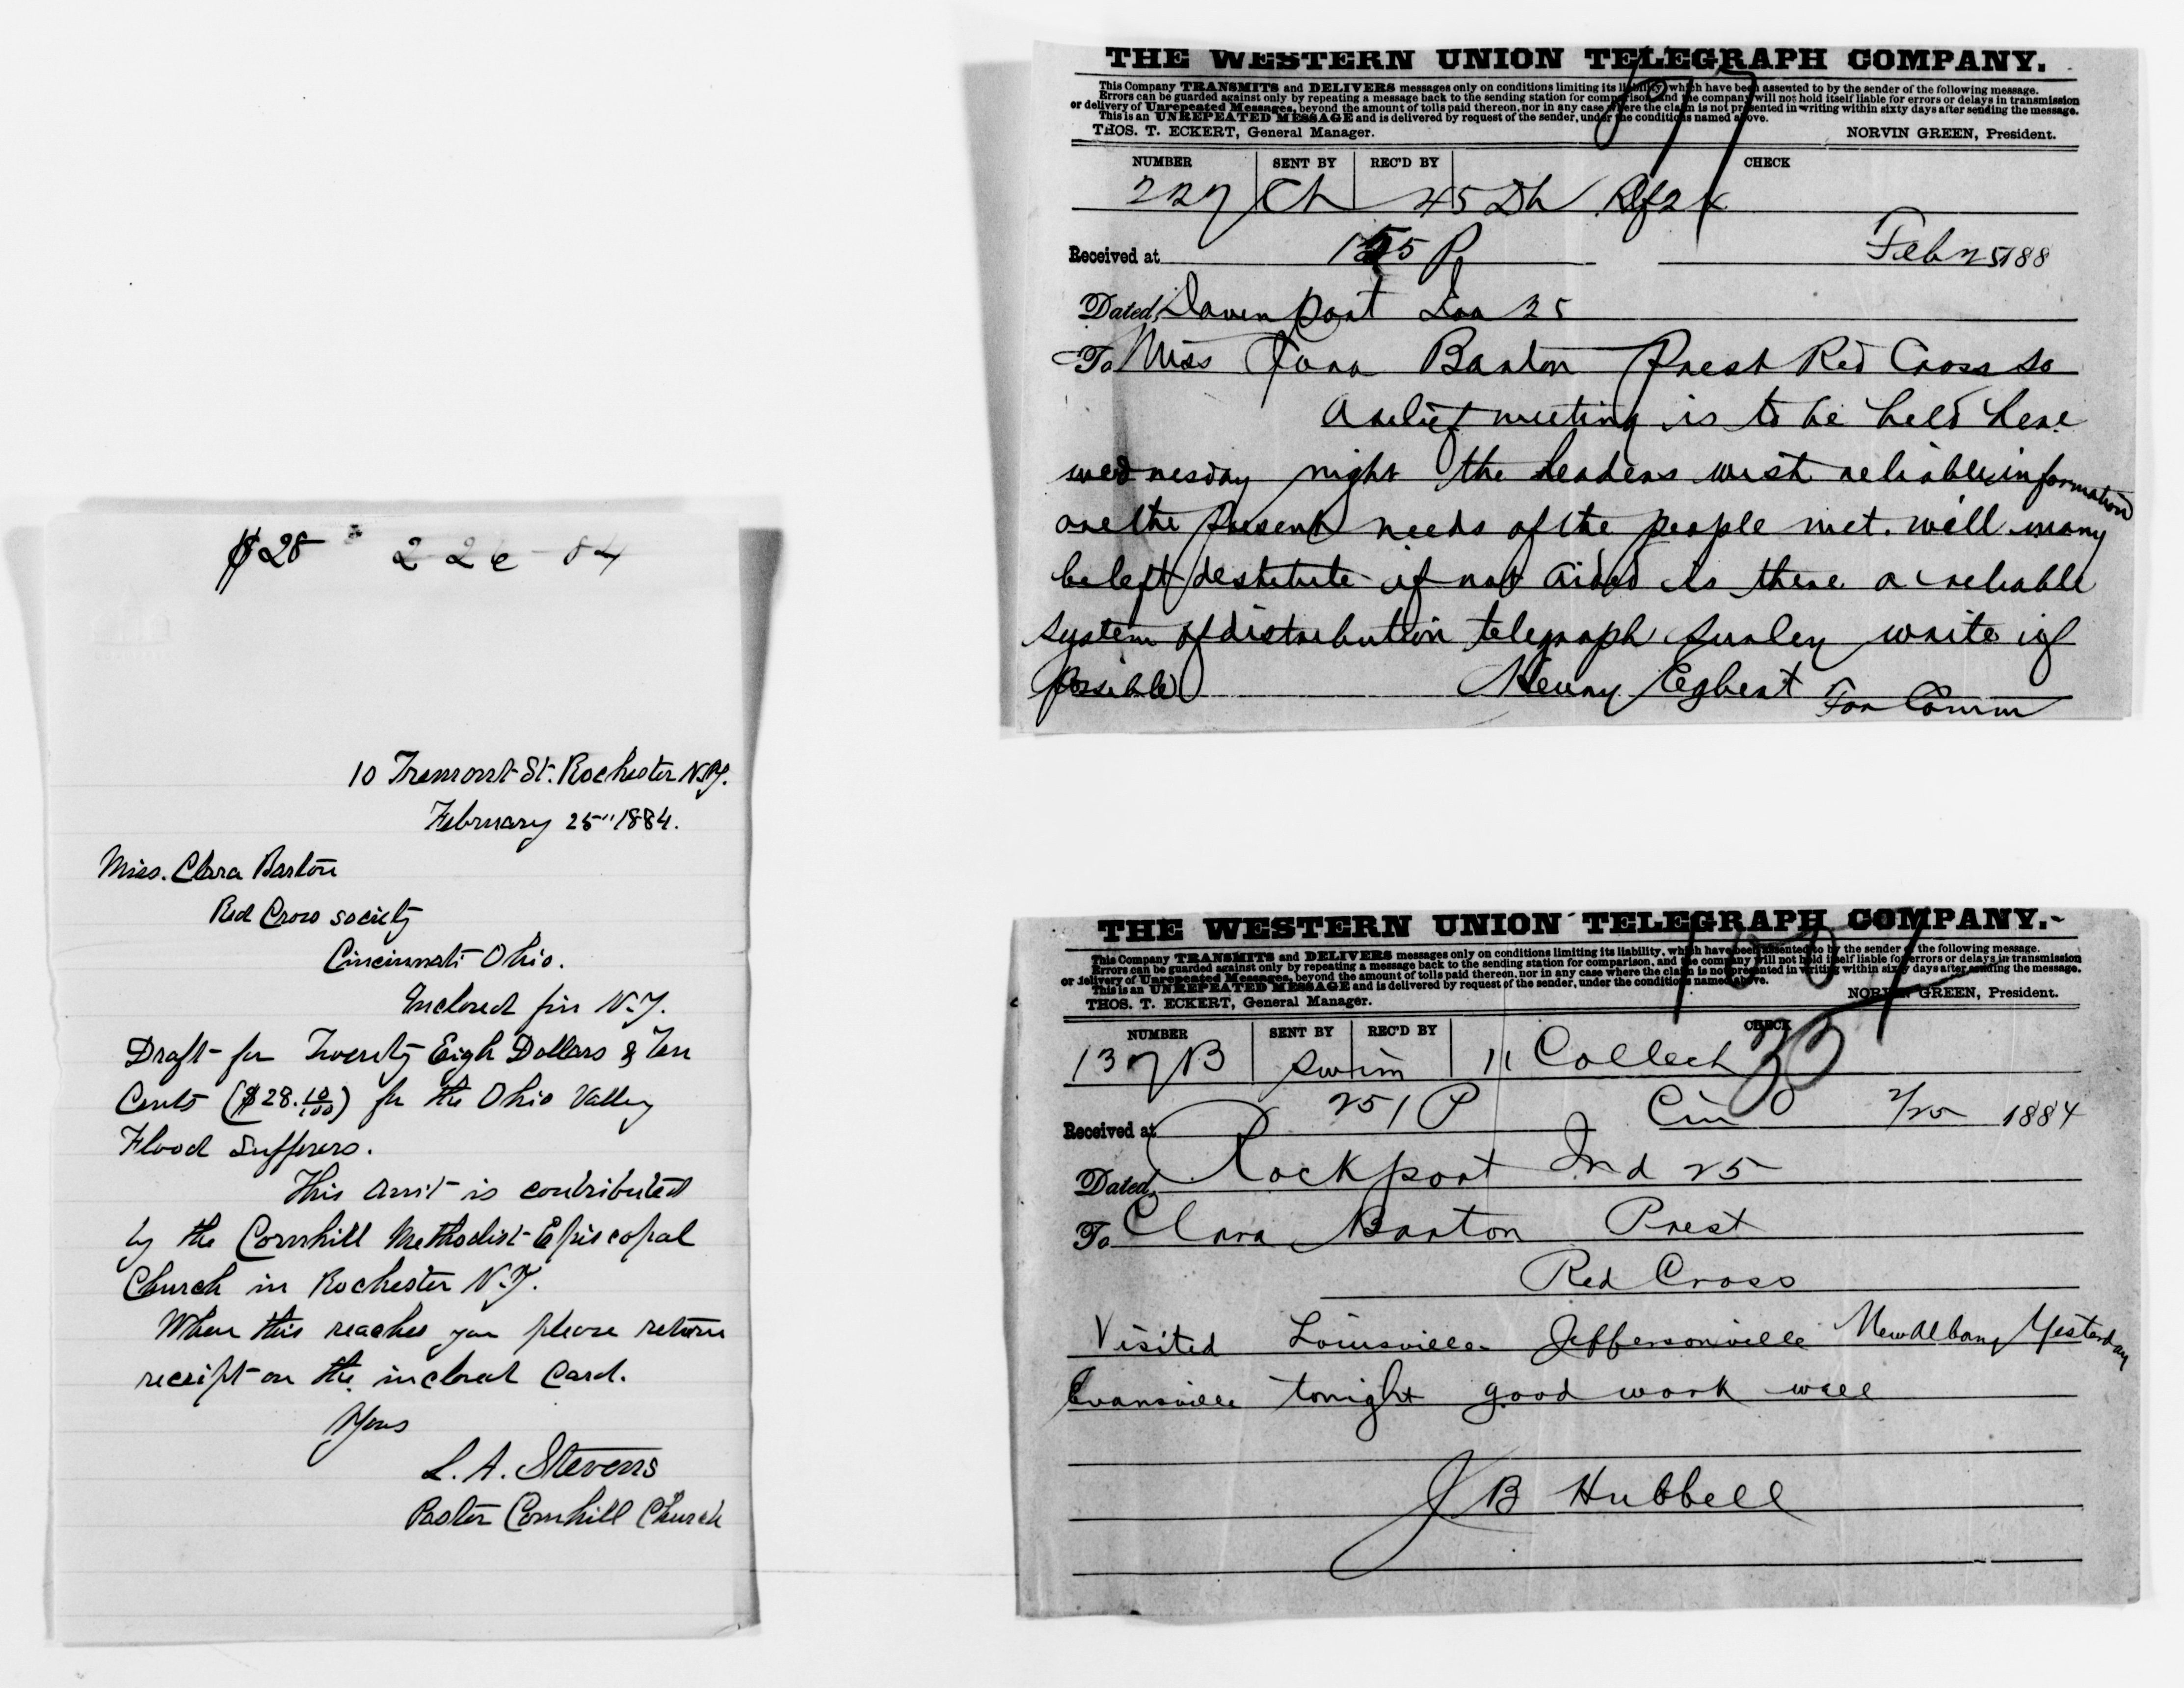 $28
10 Tremont St. Rochester N.Y.
February 25" 1884.
Miss. Clara Barton
Red Cross society
Cincinnati Ohio.
Inclosed fin N.Y.
Draft for Twenty Eigh Dollars & Ten
Cents ($28.10/100) for the Ohio Valley
Flood Sufferers.
This amt is contributed
by the Cornhill Methodist Episcopal
Church in Rochester N.Y.
When this reaches you please return
receipt on the inclosed Card.
Yours
L. A. Stevens
Pastor Cornhill Church
THE WESTERN UNION TELEGRAPH COMPANY.
This Company TRANSMITS and DELIVERS messages only on conditions limiting its liability, which have been assented to by the sender of the following message.
Errors can be guarded against only by repeating a message back to the sending station for comparison, and the company will not hold itself liable for errors or delays in transmission
or delivery of Unrepeated Messages, beyond the amount of tolls paid thereon, nor in any case where the claim is not presented in writing within sixty days after sending the message.
This is an UNREPEATED MESSAGE and is delivered by request of the sender, under the conditions named above.
THOS. T. ECKERT, General Manager. NORVIN GREEN, President.
NUMBER SENT BY REC'D BY CHECK
227 Ch 45 Dh
Received at 155 P Feb 25 188
Dated, Davenport Ioa 25
To Miss Clara Barton Prest Red Cross So
A relief meeting is to be held here
wednesday night the leaders wish reliable information
are the present needs of the people met. will many
be left destitute if not aided is there a reliable
system of distribution telegraph surley write if
possible Henry Egbert For Comm
THE WESTERN UNION TELEGRAPH COMPANY.
This Company TRANSMITS and DELIVERS messages only on conditions limiting its liability, which have been assented to by the sender of the following message.
Errors can be guarded against only by repeating a message back to the sending station for comparison, and the company will not hold itself liable for errors or delays in transmission
or delivery of Unrepeated Messages, beyond the amount of tolls paid thereon, nor in any case where the claim is not presented in writing within sixty days after sending the message.
This is an UNREPEATED MESSAGE and is delivered by request of the sender, under the conditions named above.
THOS. T. ECKERT, General Manager. NORVIN GREEN, President.
NUMBER SENT BY REC'D BY CHECK
137 B 11 Collect
Received at 251 P Cin O 2/25 1884
Dated, Rockport Ind 25
To Clara Barton Prest
Red Cross
Visited Louisville Jeffersonville New Albany Yesterday
Evansville tonight good work well
J B Hubbell